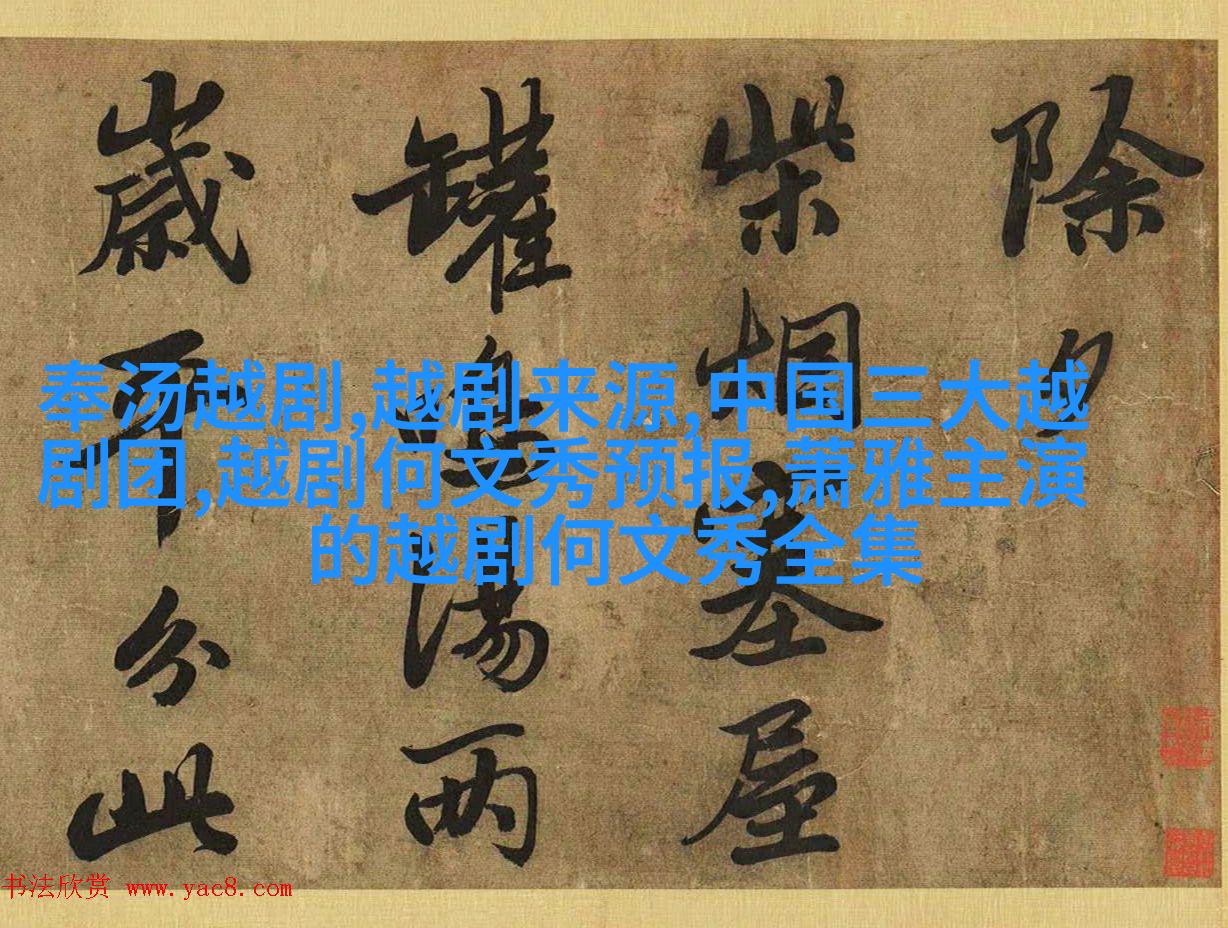 除夕
柴烟塞屋
罐鳴湯兩
歲平分此
奉汤越剧,越剧来源,中国三大越
剧团,越剧何文秀预报,萧雅主演
的越剧何文秀全集
书法欣赏 www.yac8.com